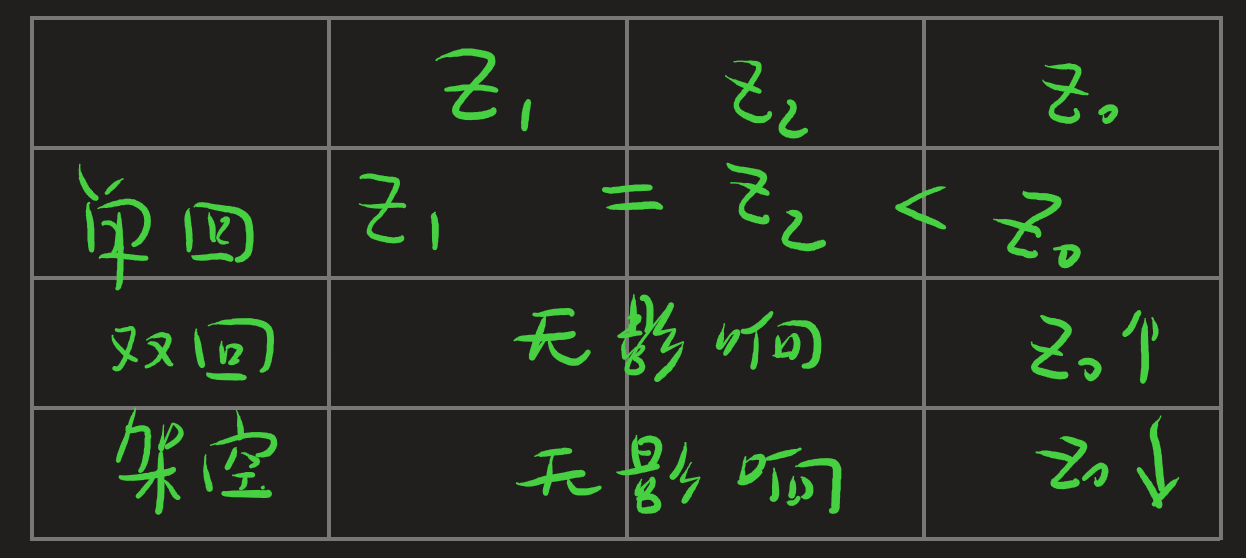 Z₁ Z₂ Z₀
单回 Z₁ = Z₂ < Z₀
双回 无影响 Z₀↑
架空 无影响 Z₀↓